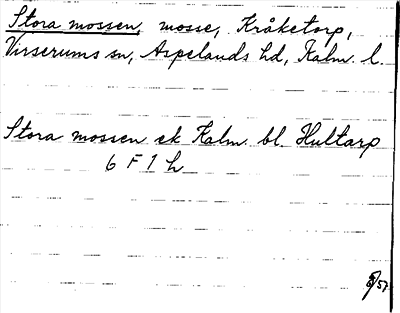 Stora mossen, mosse, Kråketorp,
Virserums sn, Aspelands hd, Kalm. l.
Stora mossen ek Kalm. bl. Hultarp
6 F 1 h